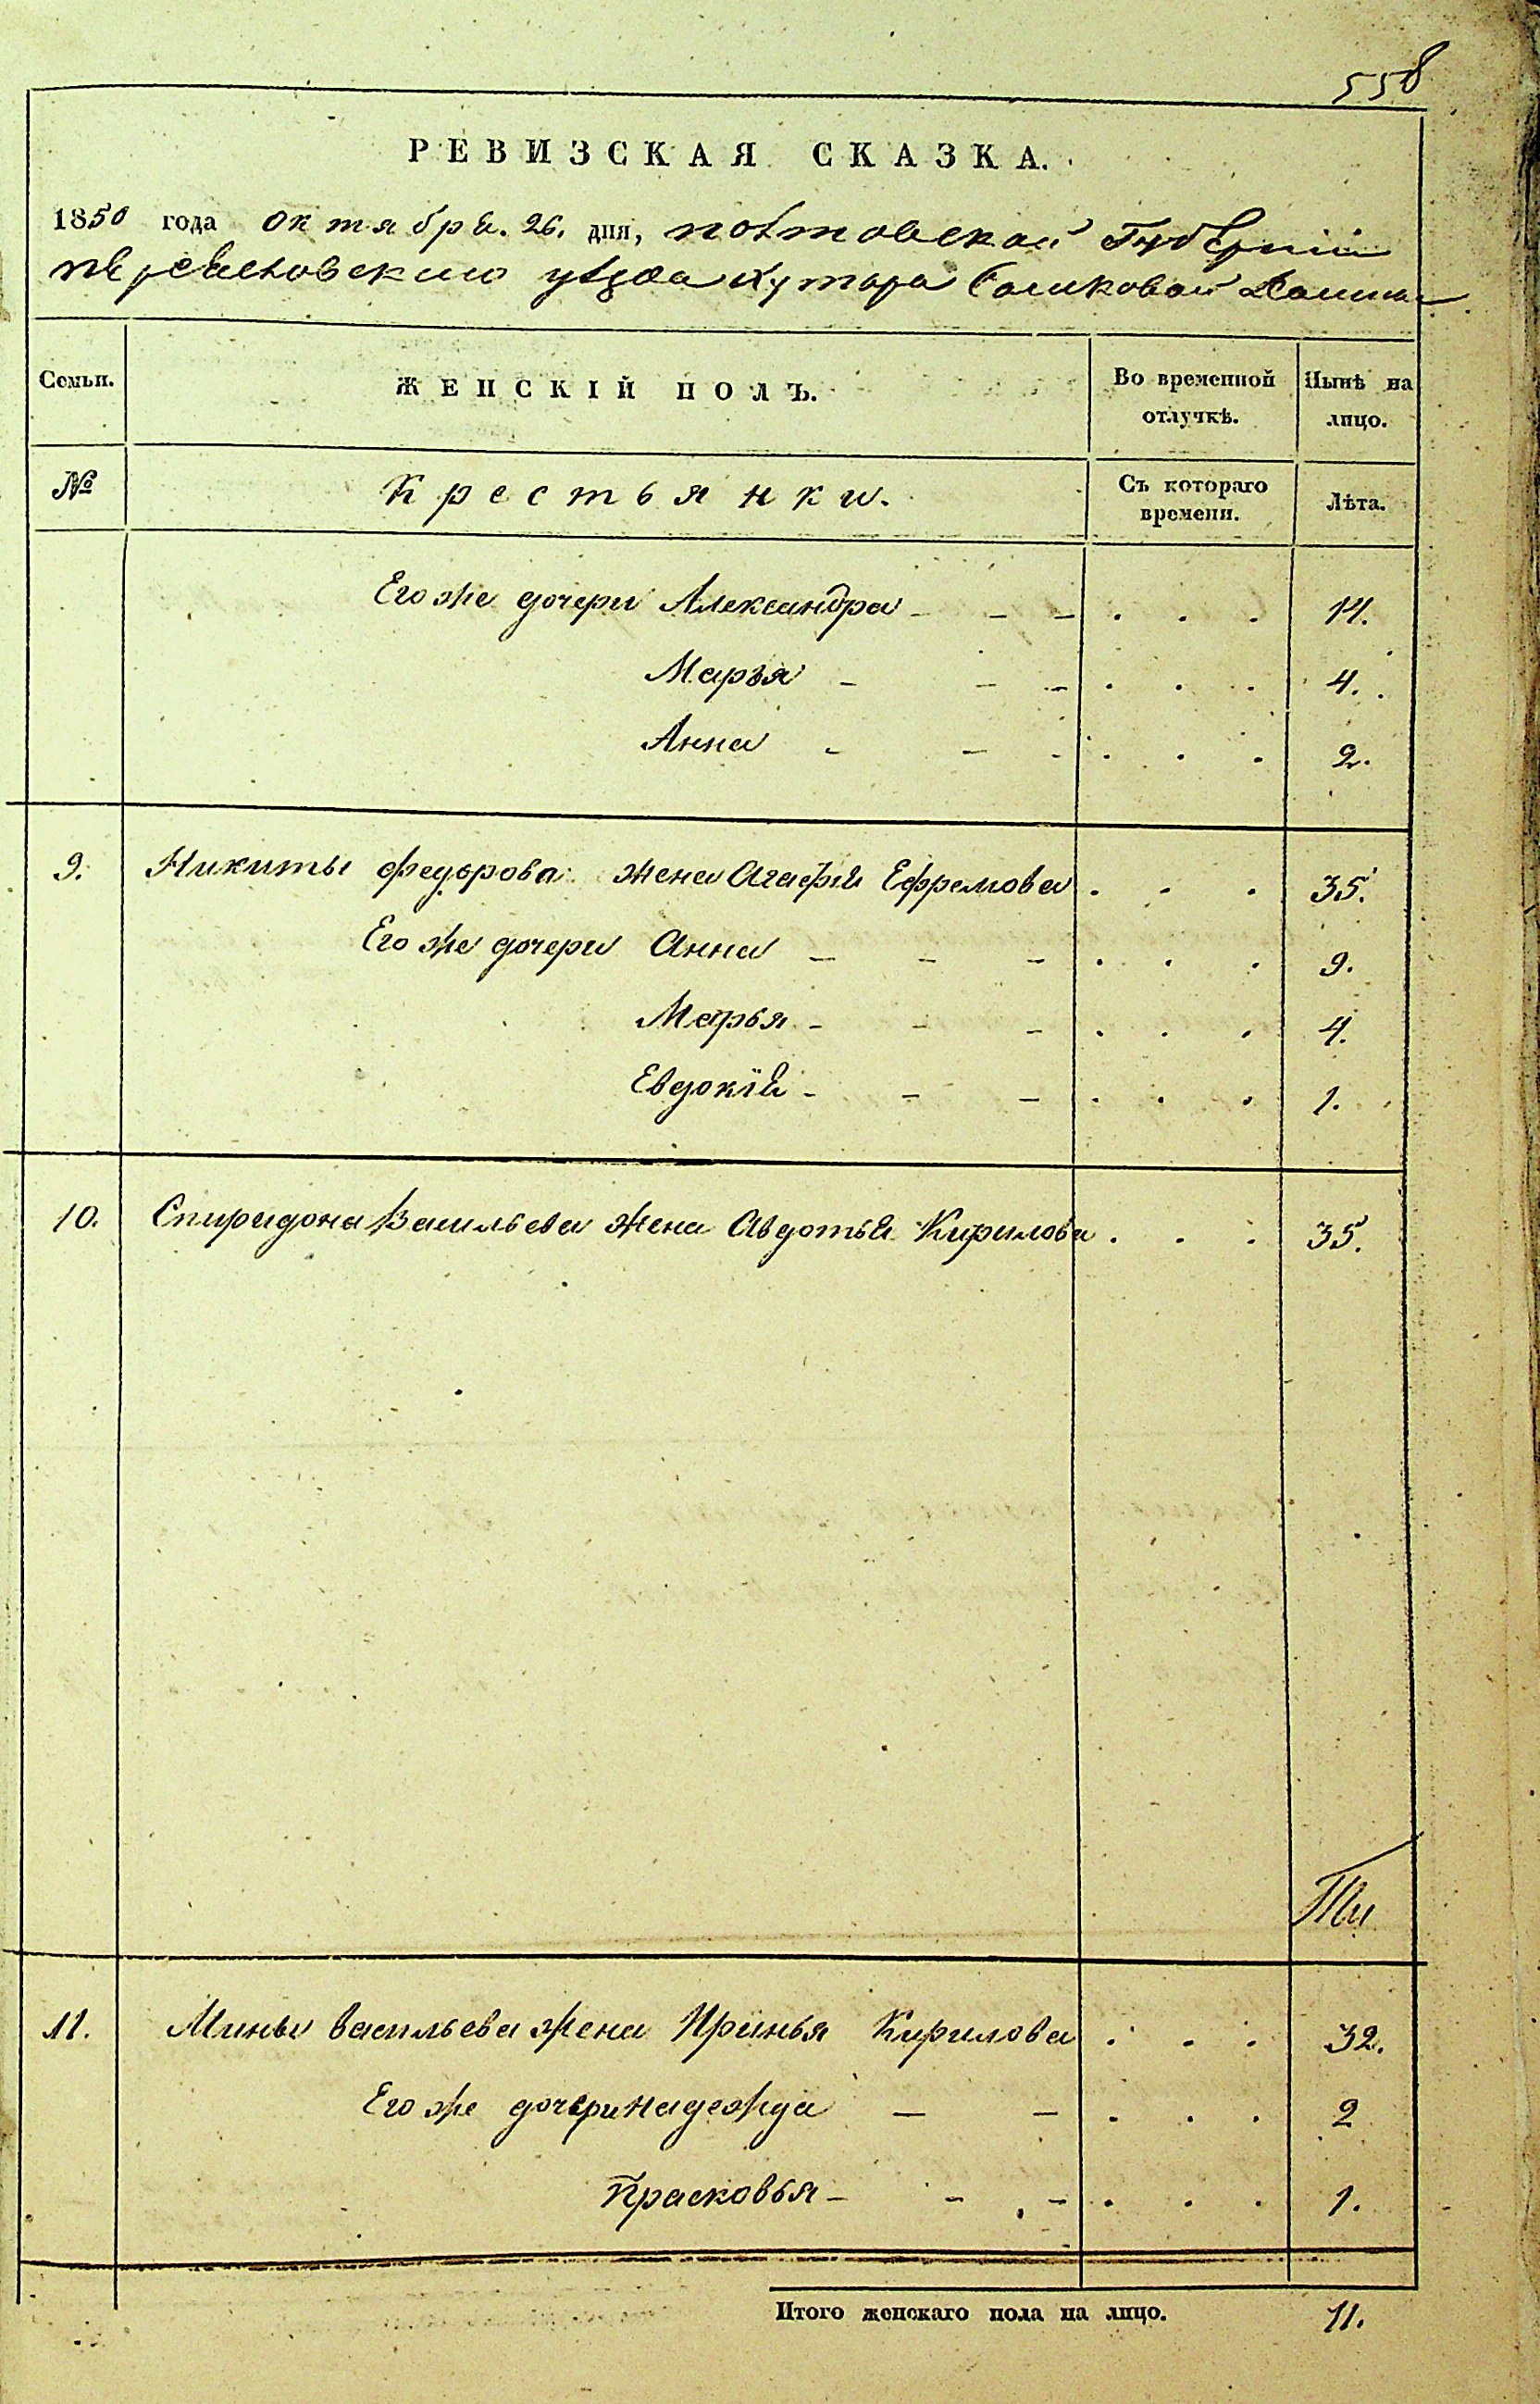 558
РЕВИЗСКАЯ СКАЗКА.
1850 года октября. 26. дня, полтовской Губернии
уезда хутора
Семьи. ЖЕНСКІЙ ПОЛЪ. Во временной отлучкѣ. Нынѣ на лицо.
№ Крестьянки. Съ котораго времени. Лѣта.
Его же дочери Александра - - - . . . 14.
Марья - - - . . . 4.
Анна - - - . . . 2.
9. Никиты федорова жена Агафия Ефремова . . . 35.
Его же дочери Анна - - - . . . 9.
Марья - - - . . . 4.
Евдокия - - - . . . 1.
10. Спиридона Васильева жена Авдотья Кирилова . . . 35.
11. Мины васильева жена Иринья Кирилова . . . 32.
Его же дочери надежда - - . . . 2
Прасковья - - - . . . 1.
Итого женскаго пола на лицо. 11.